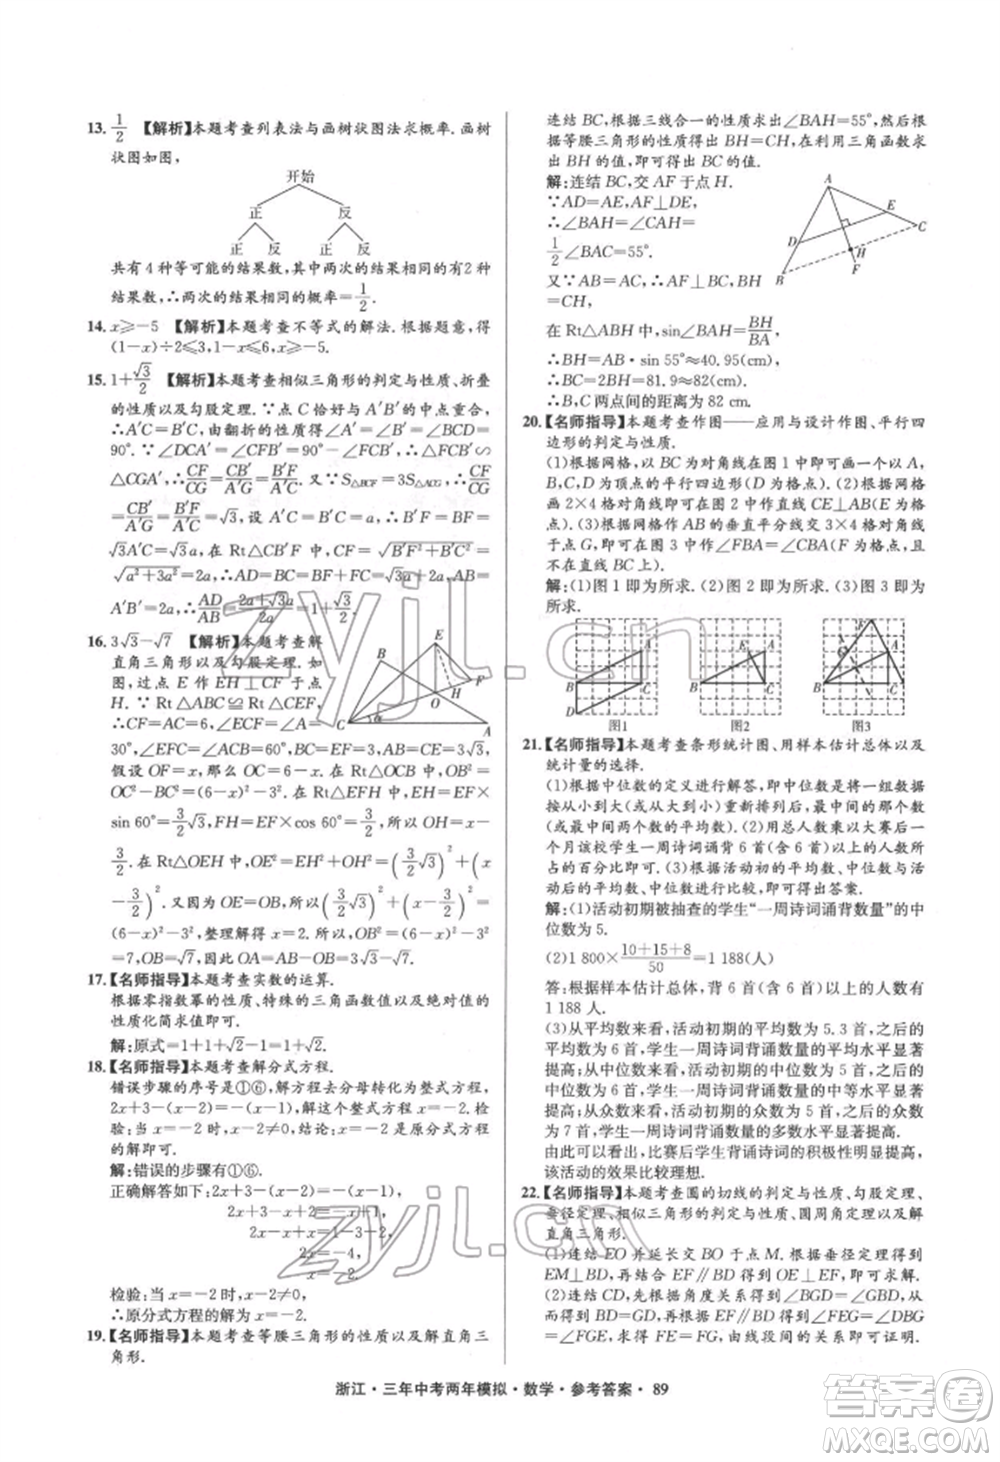 13. 1/2 【解析】本题考查列表法与画树状图法求概率.画树
状图如图,
开始
正 反
正 反 正 反
共有4种等可能的结果数,其中两次的结果相同的有2种
结果数,∴两次的结果相同的概率=1/2.
14. x≥-5 【解析】本题考查不等式的解法.根据题意,得
(1-x)÷2≤3,1-x≤6,x≥-5.
15. 1+√3/2 【解析】本题考查相似三角形的判定与性质、折叠
的性质以及勾股定理.∵点C恰好与A′B′的中点重合,
∴A′C=B′C,由翻折的性质得∠A′=∠B′=∠BCD=
90°.∵∠DCA′=∠CFB′=90°-∠B′CF,∴△B′CF∽
△CGA′,∴CF/CG=B′F/A′C.∵S△BCF=3S△A′CG,∴CF/CG
=CB′/A′G=B′F/A′C=√3,设A′C=B′C=a,则B′F=
√3A′C=√3a,在Rt△CB′F中,CF=√(B′F²+B′C²)=
√(a²+3a²)=2a,∴AD=BC=BF+CF=√3a+2a,AB=
A′B′=2a,∴AD/AB=(2a+√3a)/2a=1+√3/2.
16. 3√3-√7 【解析】本题考查解
直角三角形以及勾股定理.如
图,过点E作EH⊥CF于点
H.∵Rt△ABC≌Rt△CEF,
∴CF=AC=6,∠ECF=∠A=
30°,∠EFC=∠ACB=60°.
假设OF=x,那么OC=6-x.∵∠B=90°,∴OB²=
OC²-BC²=(6-x)²-3².在Rt△EFH中,EH=EF×
sin 60°=3/2√3,FH=EF×cos 60°=3/2.所以OH=x-
3/2.在Rt△OEH中,OE²=EH²+OH²=(3/2√3)²+(x
-3/2)².又因为OE=OB,所以(3/2√3)²+(x-3/2)²=
(6-x)²-3²,整理解得x=2.所以OB²=(6-2)²-3²
=7,OB=√7.因此OA=AB-OB=3√3-√7.
17.【名师指导】本题考查实数的运算.
根据零指数幂的性质、特殊的三角函数值以及绝对值的
性质化简求值即可.
解:原式=1+1+√2-1=√2+1.
18.【名师指导】本题考查解分式方程.
错误步骤的序号是①⑥,解去分母转化为整式方程,
2x+3-(x-2)=-(x-1),解这个整式方程,x=-2.检
验:当x=-2时,x-1≠0,结论:原分式方程的解为x=
-2.即可解答.
解:错误的步骤有①⑥.
正确解答如下:2x+3-(x-2)=-(x-1),
2x+3-x+2=-x+1,
2x-x+x=1-3-2,
2x=-4,
x=-2.
检验:当x=-2时,x-1≠0,
∴原分式方程的解为x=-2.
19.【名师指导】本题考查等腰三角形的性质以及解直角三
角形.
连结BC,根据三线合一的性质求出∠BAH=55°,然后
根据等腰三角形的性质求出BH=CH,在利用三角函数求出
BH的值,即可求出BC的值.
解:连结BC,交AF于点H.
∵AD=AE,AF⊥DE,
∴∠BAH=∠CAH=
1/2∠BAC=55°.
又∵AB=AC,AF⊥BC,BH
=CH,
在Rt△ABH中,sin∠BAH=BH/BA,
∴BH=AB·sin 55°≈40.95(cm),
∴BC=2BH=81.9≈82(cm).
∴B,C两点间的距离为82 cm.
20.【名师指导】本题考查作图——应用与设计作图、平行四
边形的判定与性质.
(1)根据网格,以BC为对角线在图1中即可画一个以A,
B,C,D为顶点的平行四边形(D为格点).(2)根据网格
画2×4网格对角线即可在图2中作直线CE⊥AB(E为格
点).(3)根据网格作AB的垂直平分线交3×4格点对角
线于点G,即可在图3中作∠FBA=∠CBA(F为格点,且
不在直线BC上).
解:(1)图1即为所求.(2)图2即为所求.(3)图3即为
所求.
图1 图2 图3
21.【名师指导】本题考查条形统计图、用样本估计总体以及
统计量的选择.
(1)根据中位数的定义进行解答,即中位数是将一组数据
按从小到大(或从大到小)重新排列后,最中间的那个数
(或最中间两个数)的平均数.(2)用总人数乘以大赛后一
个月该校学生一周诗词诵背6首(含6首)以上的人数所占
的百分比即可.(3)根据活动初的平均数、中位数与活动
后的平均数、中位数进行比较,即可得出答案.
解:(1)活动初期被抽查的学生“一周诗词诵背数量”的中
位数为5.
(2)1 800×(10+15+8)/50=1 188(人)
答:根据样本估计总体,背6首(含6首)以上的人数有
1 188人.
(3)从平均数来看,活动初期的平均数为5.3首,之后的
平均数为6首,学生一周诗词背诵数量的平均水平显著
提高;从中位数来看,活动初期的中位数为5首,之后的
中位数为6首,学生一周诗词背诵数量的中等水平显著
提高;从众数来看,活动初期的众数为4首,之后的众数
为7首,学生一周诗词背诵数量的多数水平显著提高.
由此可以看出,比赛后学生背诵诗词的积极性明显提高,
该活动的效果比较理想.
22.【名师指导】本题考查圆的切线的判定与性质、勾股定理、
垂径定理、相似三角形的判定与性质、圆周角定理以及平
行线的性质.
(1)连结EO并延长交BD于点M.根据垂径定理可得
EM⊥BD,再根据EF∥BD,可得OE⊥EF,即可得结论.
(2)连结BG,根据角度关系可得∠BGD=∠GBD,从
而得BD=GD,再根据EF∥BD,可得∠FEG=∠DBG
=∠FGE,求得FE=FG,由线段间的关系即可证明.
浙江·三年中考两年模拟·数学·参考答案·89
zyjl.cn
zyjl.cn
答案圈
MXQE.COM